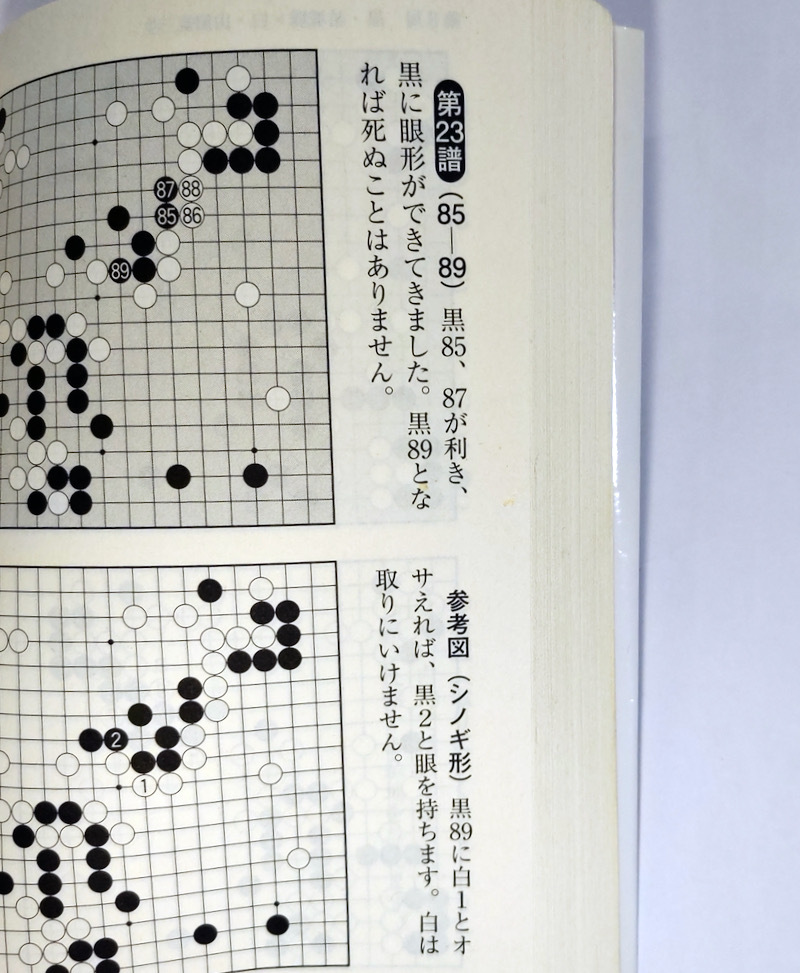 第23譜(85―89) 黒85、87が利き、
黒に眼形ができてきました。黒89とな
れば死ぬことはありません。
87 88
85 86
89
参考図(シノギ形) 黒89に白1とオ
サえれば、黒2と眼を持ちます。白は
取りにいけません。
2
1